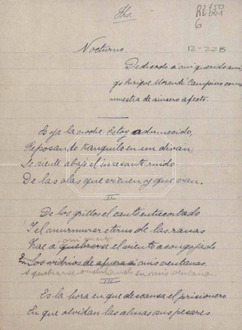 Nocturno.
12-228
Dedicado a mi querido ami
go Enrique Morente Campino como
muestra de sincero afecto.
I
Es ya la noche. Estoy adormecido,
Reposando tranquilo en un divan,
Se siente abajo el incesante ruido
De las olas que vienen y que van.
II
De los grillos el canto entrecortado
Y el murmurar eterno de las ranas
Trae a mi el viento acongojado
En los vidrios de mis ventanas
III
Es la hora en que descansa el prisionero
En que olvidan las almas sus pesares